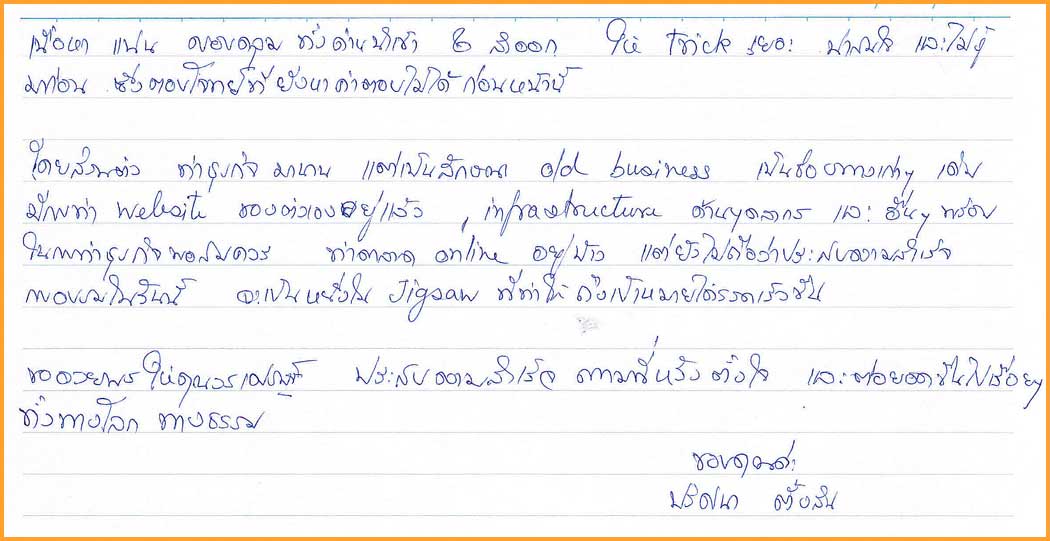 เนื้อหา แน่น ครอบคลุม ทั้งด้านนำเข้า & ส่งออก ให้ trick เยอะ น่าสนใจ และไม่รู้
มาก่อน ซึ่งตอบโจทย์ที่ยังหาคำตอบไม่ได้ก่อนหน้านี้
โดยส่วนตัว ทำธุรกิจมานาน แต่เป็นลักษณะ old business เป็นช่องทางเก่าๆ เดิม
มีการทำ website ของตัวเองอยู่แล้ว , infrastructure ด้านบุคลากร และ อื่นๆ พร้อม
ในการทำธุรกิจพอสมควร ทำตลาด online อยู่บ้าง แต่ยังไม่ถือว่าประสบความสำเร็จ
การอบรมในวันนี้ จะเป็นหนึ่งใน Jigsaw ที่ทำให้ถึงเป้าหมายได้รวดเร็วขึ้น
ขออวยพรให้คุณ ประสบความสำเร็จ ตามที่หวัง ตั้งใจ และต่อยอดขึ้นไปเรื่อยๆ
ทั้งทางโลก ทางธรรม
ขอบคุณค่ะ